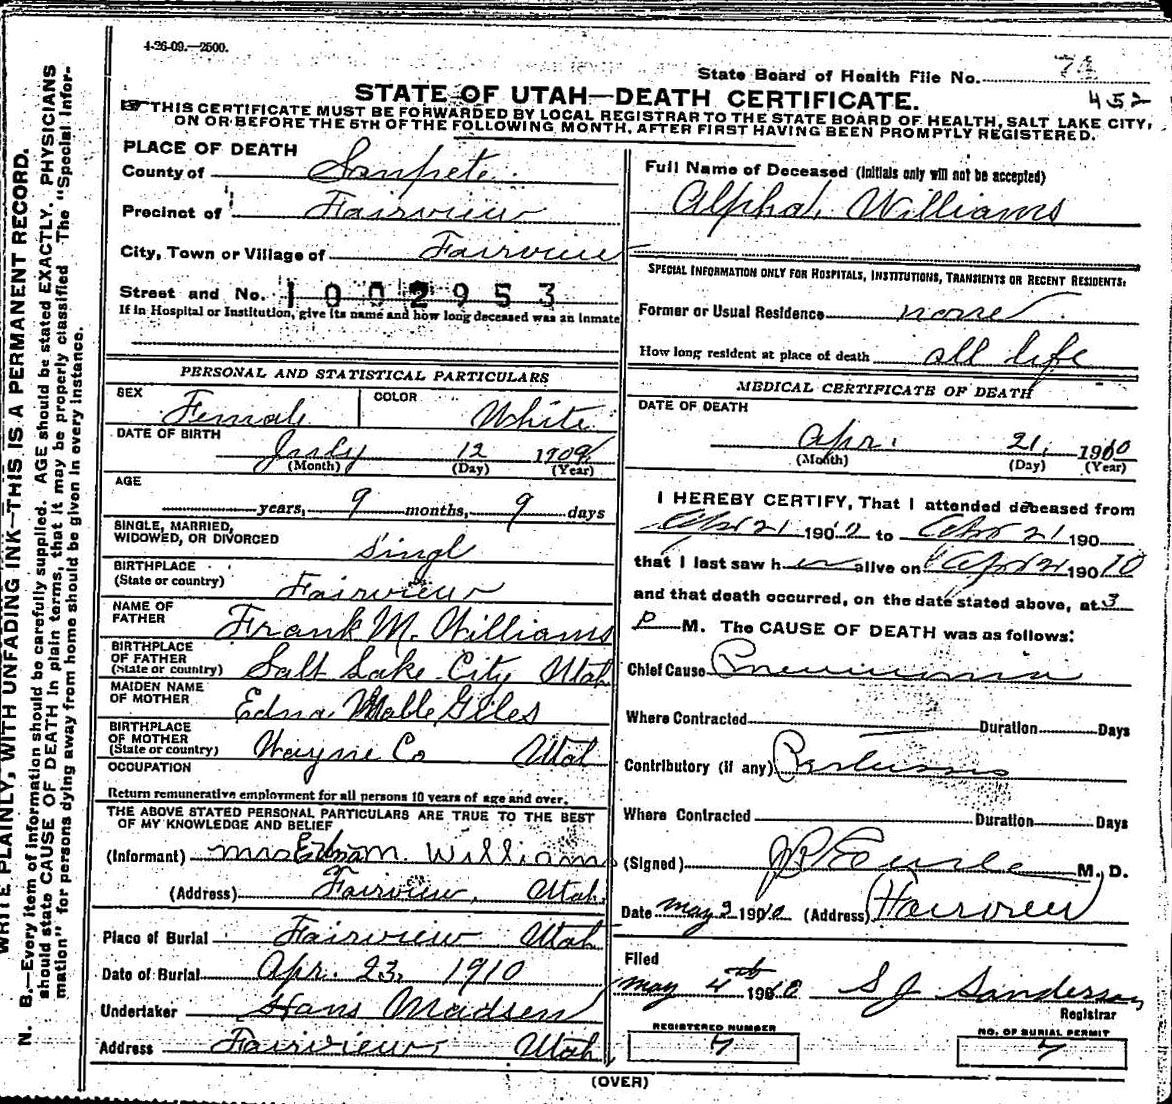 4-26-09.—2500.
State Board of Health File No. 74
STATE OF UTAH—DEATH CERTIFICATE.
452
THIS CERTIFICATE MUST BE FORWARDED BY LOCAL REGISTRAR TO THE STATE BOARD OF HEALTH, SALT LAKE CITY,
ON OR BEFORE THE 5TH OF THE FOLLOWING MONTH, AFTER FIRST HAVING BEEN PROMPTLY REGISTERED.
PLACE OF DEATH
County of Sanpete
Precinct of Fairview
City, Town or Village of Fairview
Street and No. 1002953
If in Hospital or Institution, give its name and how long deceased was an inmate
PERSONAL AND STATISTICAL PARTICULARS
SEX Female COLOR White
DATE OF BIRTH
July 12 1909
(Month) (Day) (Year)
AGE
years, 9 months, 9 days
SINGLE, MARRIED,
WIDOWED, OR DIVORCED Singl
BIRTHPLACE
(State or country) Fairview
NAME OF
FATHER Frank M. Williams
BIRTHPLACE
OF FATHER
(State or country) Salt Lake City Utah
MAIDEN NAME
OF MOTHER Edna Mable Giles
BIRTHPLACE
OF MOTHER
(State or country) Wayne Co Utah
OCCUPATION
Return remunerative employment for all persons 10 years of age and over.
THE ABOVE STATED PERSONAL PARTICULARS ARE TRUE TO THE BEST
OF MY KNOWLEDGE AND BELIEF
(Informant) Mrs Edna M. Williams
(Address) Fairview, Utah.
Place of Burial Fairview Utah
Date of Burial Apr. 23, 1910
Undertaker Hans Madsen
Address Fairview, Utah
Full Name of Deceased (Initials only will not be accepted)
Alpha Williams
SPECIAL INFORMATION ONLY FOR HOSPITALS, INSTITUTIONS, TRANSIENTS OR RECENT RESIDENTS:
Former or Usual Residence none
How long resident at place of death all life
MEDICAL CERTIFICATE OF DEATH
DATE OF DEATH
Apr. 21, 1910
(Month) (Day) (Year)
I HEREBY CERTIFY, That I attended deceased from
Apr 21 1900 to Apr 21 190
that I last saw her alive on Apr 21 190 10
and that death occurred, on the date stated above, at 3
P M. The CAUSE OF DEATH was as follows:
Chief Cause Pneumonia
Where Contracted Duration Days
Contributory (if any) Pertussis
Where Contracted Duration Days
(Signed) M. D.
Date May 2 1910 (Address) Fairview
Filed
May 4th 1910 S J Sanderson
Registrar
REGISTERED NUMBER
7
NO. OF BURIAL PERMIT
7
(OVER)
WRITE PLAINLY, WITH UNFADING INK—THIS IS A PERMANENT RECORD.
N. B.—Every item of information should be carefully supplied. AGE should be stated EXACTLY. PHYSICIANS
should state CAUSE OF DEATH in plain terms, that it may be properly classified. The "Special Infor-
mation" for persons dying away from home should be given in every instance.